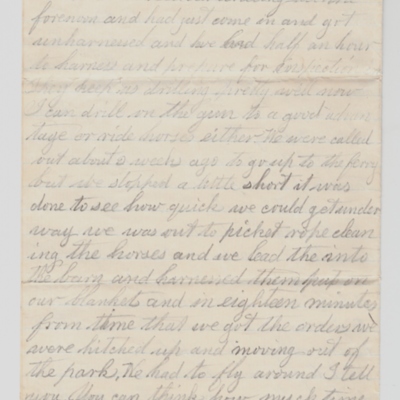 forenoon and had just come in and got
unharnessed and we had half an hour
to harness and prepare for inspection
your beck is drilling pretty well now
I can drill on the gun to a good advan
tage or ride horses either. We were called
out about a week ago to go up to the ferry
but we stopped a little short it was
done to see how quick we could get under
way we was out to picket rope clean
ing the horses and we lead the into
the barg and harnessed them put on
our blanket and in eighteen minutes
from time that we got the orders we
were hitched up and moving out of
the park, We had to fly around I tell
you You can think how much time